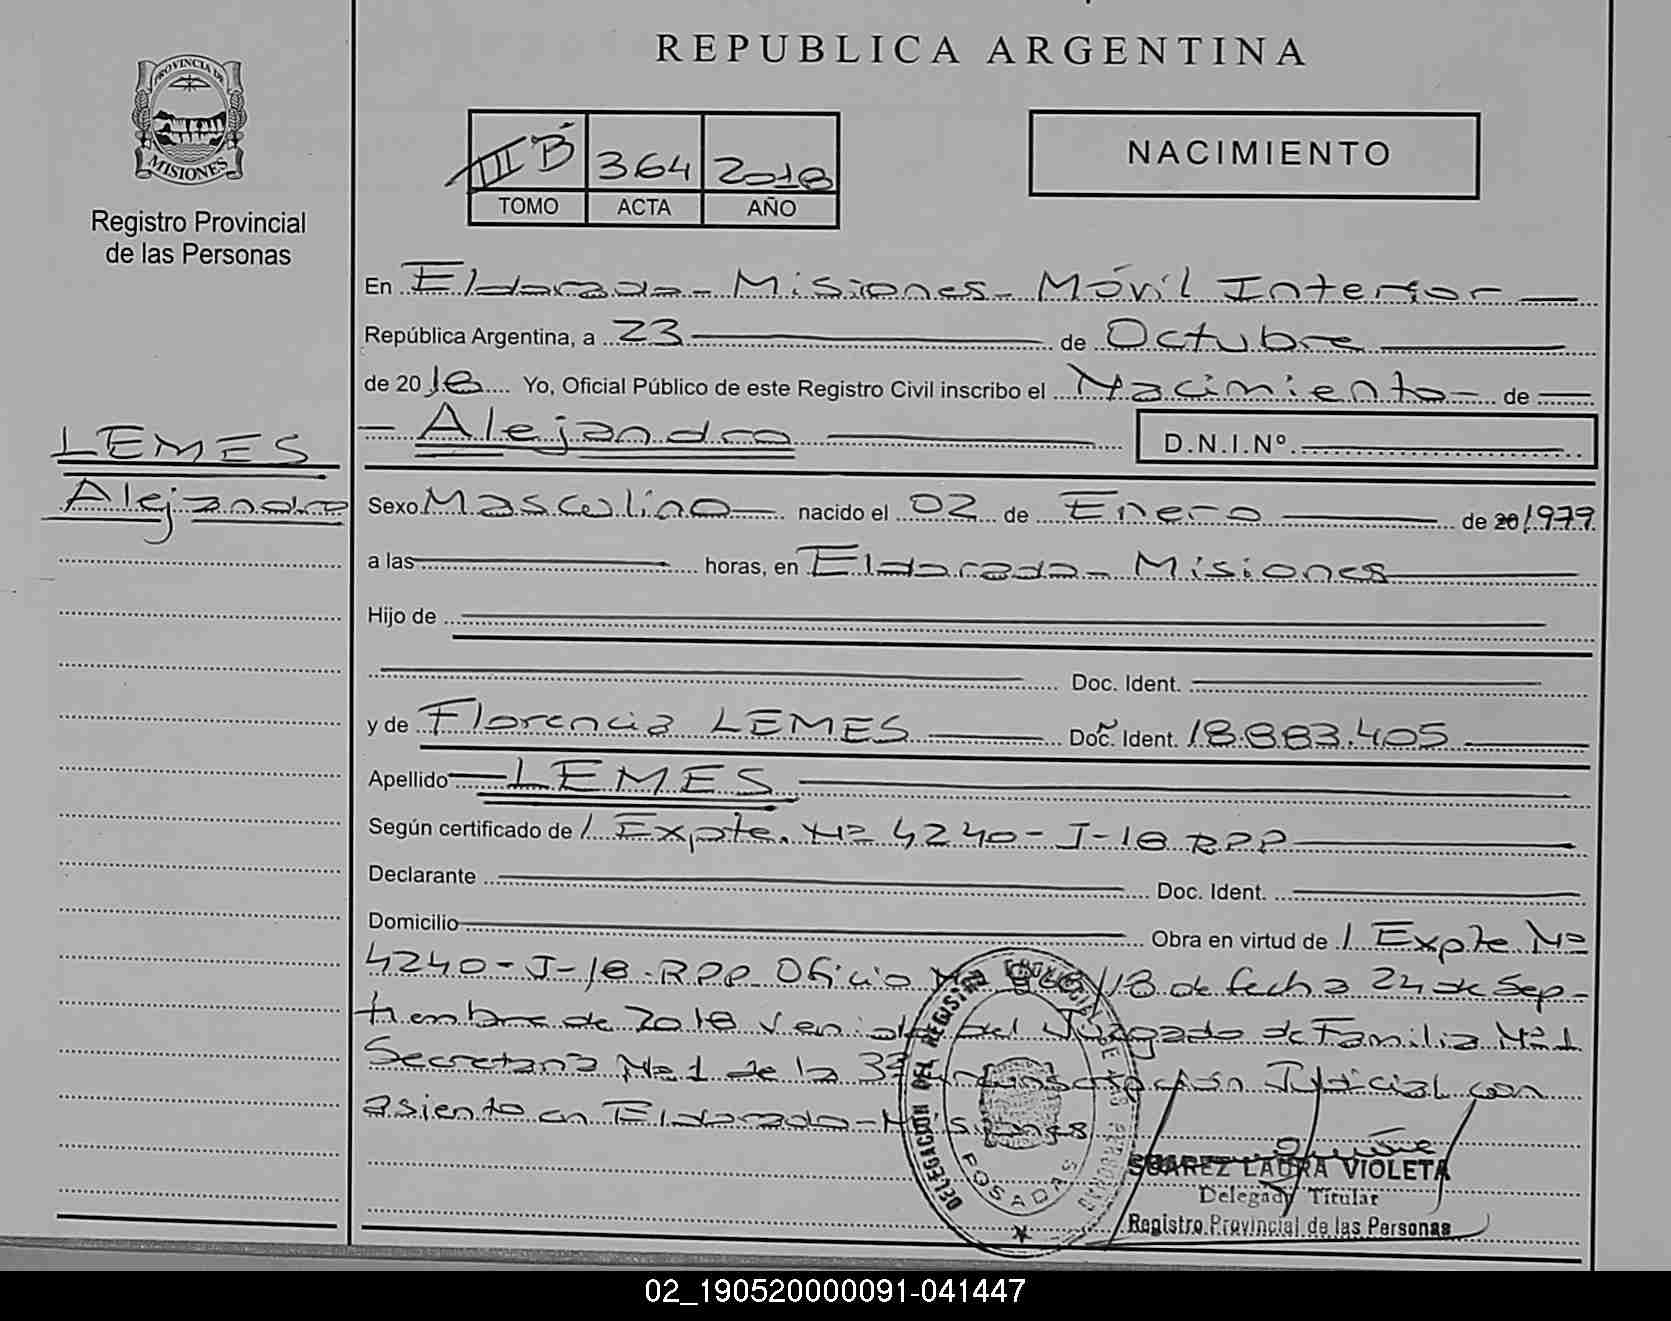 REPUBLICA ARGENTINA
PROVINCIA DE
MISIONES
Registro Provincial
de las Personas
III B 364 2018
TOMO ACTA AÑO
NACIMIENTO
En Eldorado - Misiones - Móvil Interior
República Argentina, a 23 de Octubre
de 2018 Yo, Oficial Público de este Registro Civil inscribo el Nacimiento de
Alejandro D.N.I.Nº
LEMES
Alejandro
Sexo Masculino nacido el 02 de Enero de 20 1979
a las horas, en Eldorado - Misiones
Hijo de
Doc. Ident.
y de Florencia LEMES Doc. Ident. 18.883.405
Apellido LEMES
Según certificado de / Expte. Nº 4240-J-18 RPP
Declarante Doc. Ident.
Domicilio Obra en virtud de / Expte Nº
4240-J-18-RPP Oficio /18 de fecha 24 de Sep-
tiembre de 2018 venido del Juzgado de Familia Nº1
Secretaria Nº1 de la 3ª Circunscripción Judicial con
asiento en Eldorado - Misiones
DELEGACION DEL REGISTRO PROVINCIAL DE LAS PERSONAS
POSADAS
SUAREZ LAURA VIOLETA
Delegado Titular
Registro Provincial de las Personas
02_190520000091-041447